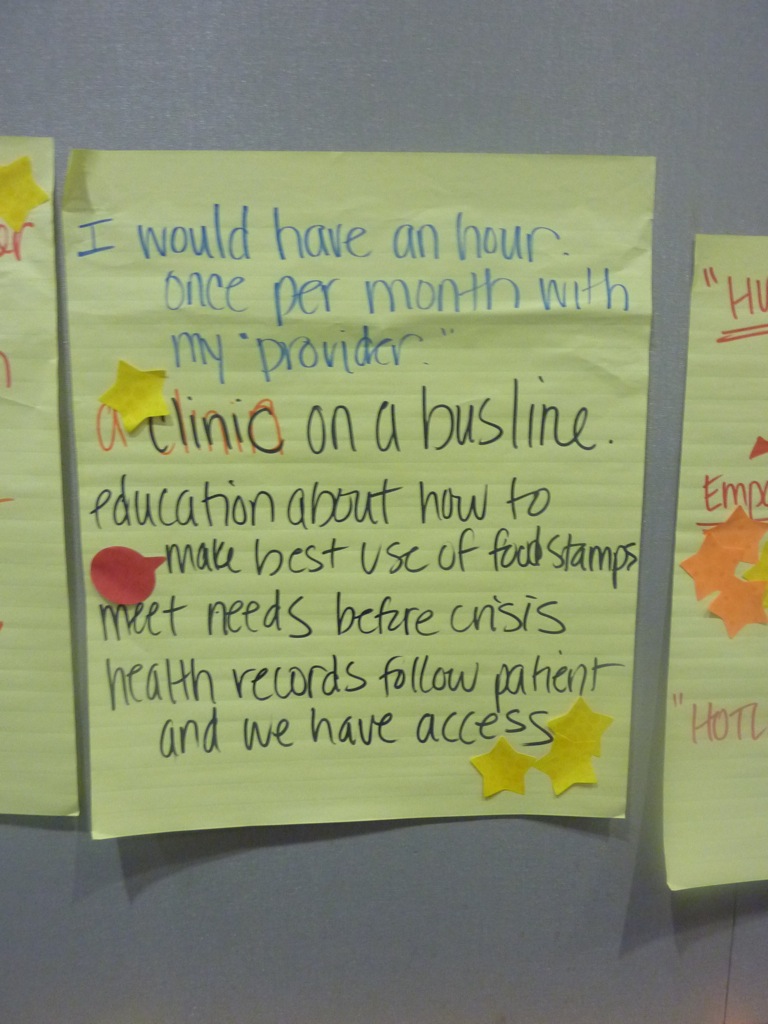 I would have an hour.
once per month with
my "provider."
a clinic on a busline.
education about how to
make best use of food stamps
meet needs before crisis
health records follow patient
and we have access
"HOTL